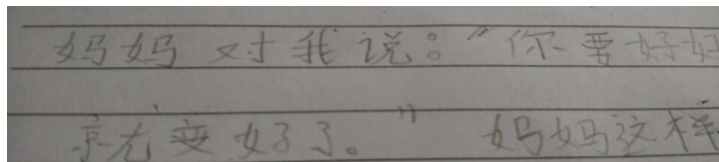 妈妈对我说：“你要好好
就变好了。”妈妈这样